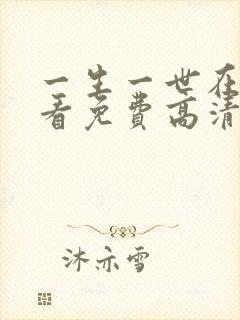 一生一世在
看免费高清
沐亦雪